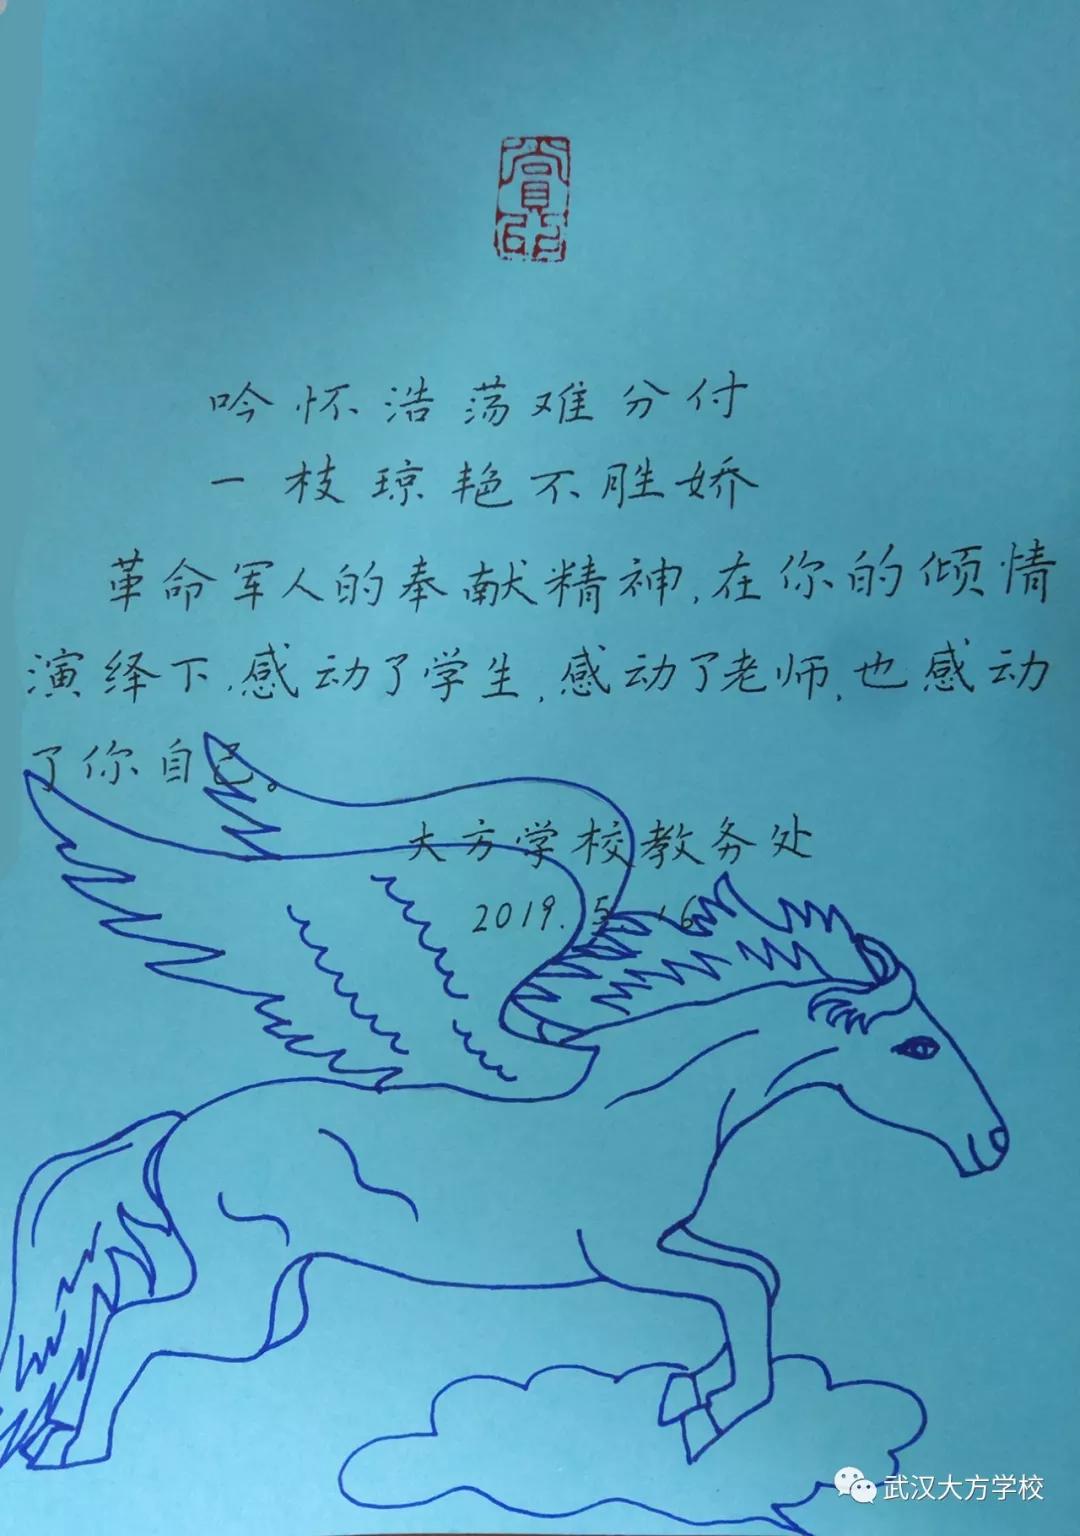 賞印
吟怀浩荡难分付
一枝琼艳不胜娇
革命军人的奉献精神,在你的倾情
演绎下,感动了学生,感动了老师,也感动
了你自己。
大方学校教务处
2019.5.16
武汉大方学校